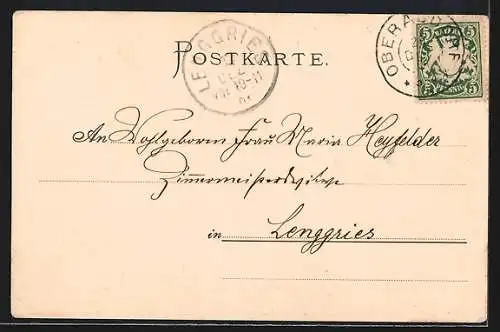 POSTKARTE.
LENGGRIES
DEZ
10-11
BAYERN
5 5
PFENNIG
An Wohlgeboren Frau Maria Heyfelder
Zimmermeisterswitwe
in Lenggries